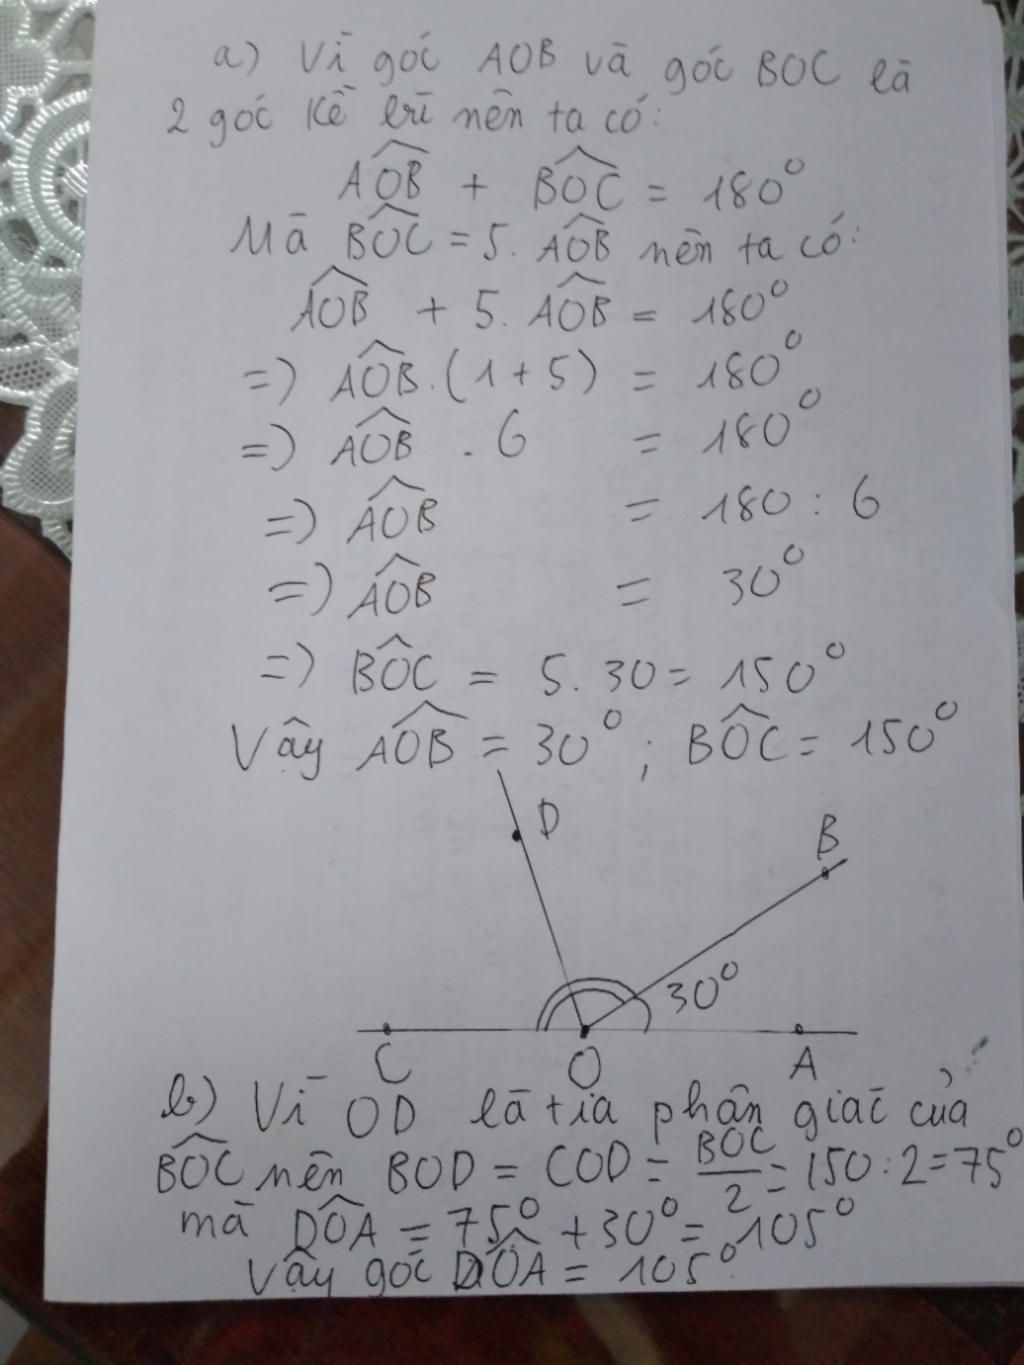 a) Vì góc AOB và góc BOC là
2 góc kề bù nên ta có:
AOB + BOC = 180°
Mà BOC = 5. AOB nên ta có:
AOB + 5. AOB = 180°
=) AOB.(1+5) = 180°
=) AOB . 6 = 180°
=) AOB = 180 : 6
=) AOB = 30°
=) BOC = 5. 30 = 150°
Vậy AOB = 30° ; BOC = 150°
D
B
30°
C O A
b) Vì OD là tia phân giác của
BOC nên BOD = COD = BOC/2 = 150 : 2 = 75°
mà DOA = 75° + 30° = 105°
Vậy góc DOA = 105°